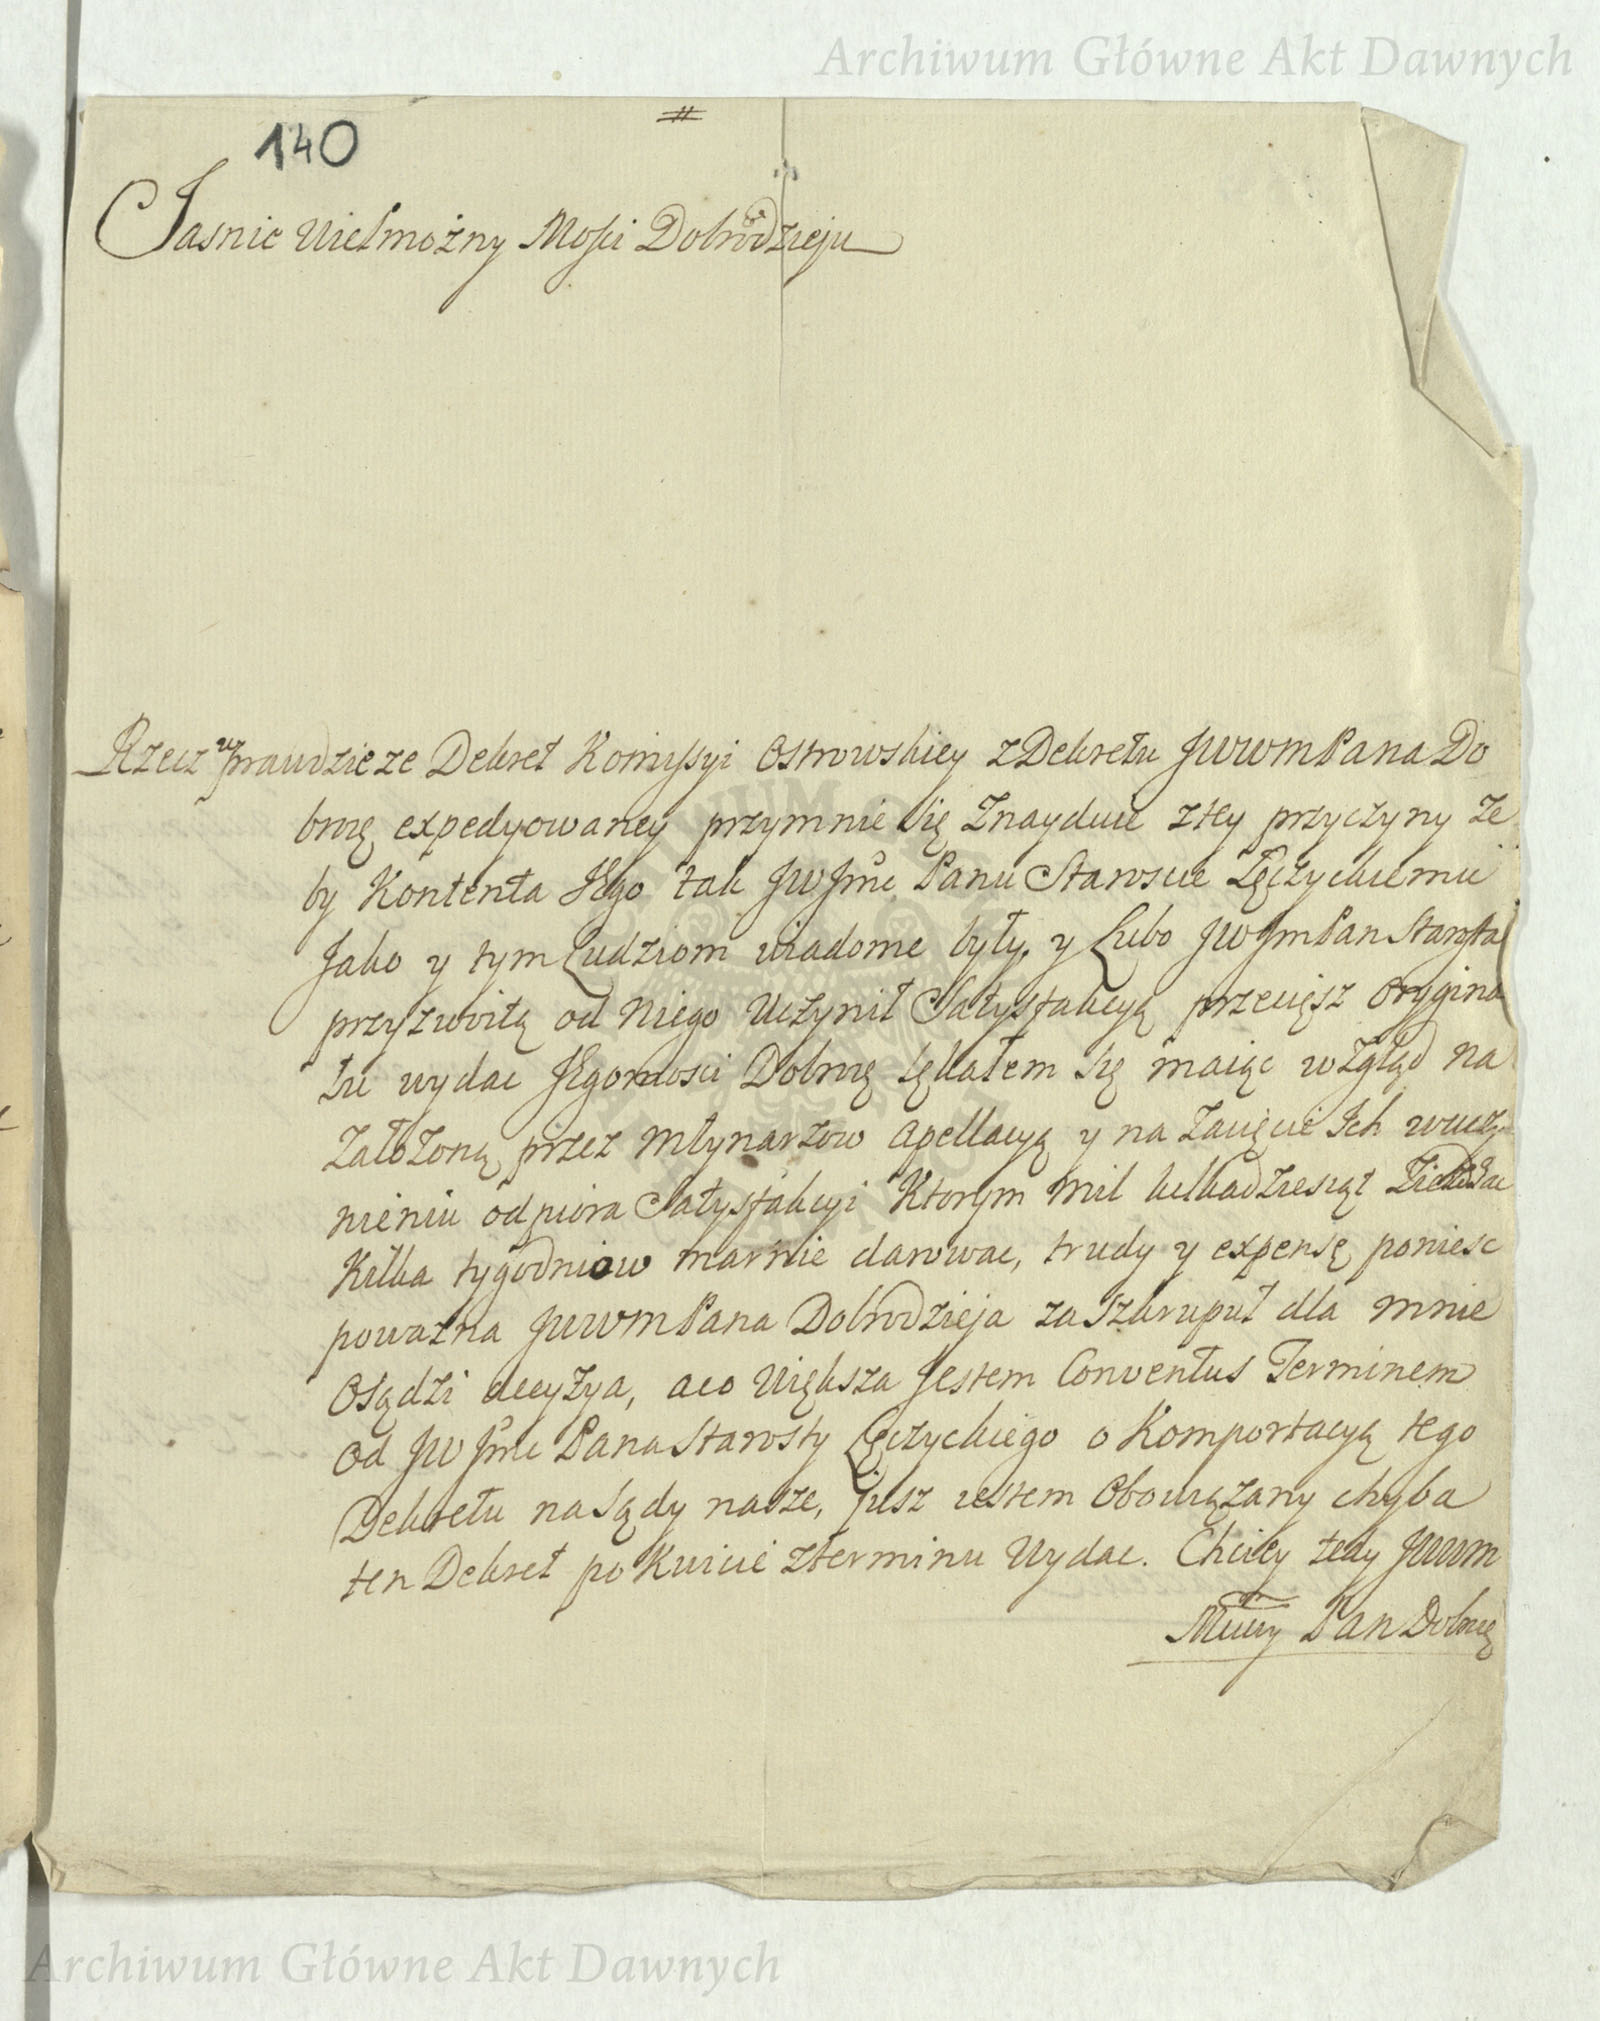 Archiwum Główne Akt Dawnych
140
Jasnie Wielmożny Mości Dobrodzieju
Rzecz wprawdzie ze Dekret Komissyi Ostrowskiey z Dekretu JWWMPana Do
brię expedyowaney przymnie się Znayduie z tey przyczyny ze
by Kontenta Jego tak JWJmć Panu Staroscie Łęczyckiemu
Jako y tym Ludziom wiadome były, y Lubo JWJmPan Starosta
przyzwoitą od niego Uczynił Satysfakcyą przecięsz Orygina
łu wydac JEgomości Dobrię lękałem się maiąc wzgląd na
Założoną przez Młynarzow Apellacyą y na zacięcie Ich wuczy
nieniu odpiora Satysfakcyi Ktorym mil kilkadziesiąt
Kilka tygodniow marnie darowac, trudy y expensę poniesc
powazna JWWMPana Dobrodzieja za szkrupuł dla mnie
Osądzi decyzya, aco Większa Jestem Conventus Terminem
od JWJmć Pana Starosty Łęczyckiego o Komportacyą tego
Dekretu na Sądy nasze, jusz iestem Obowiązany chyba
ten Dekret po Kwicie z terminu Wydac. Chciey tedy JWWM
Mciwy Pan Dobrię
Archiwum Główne Akt Dawnych